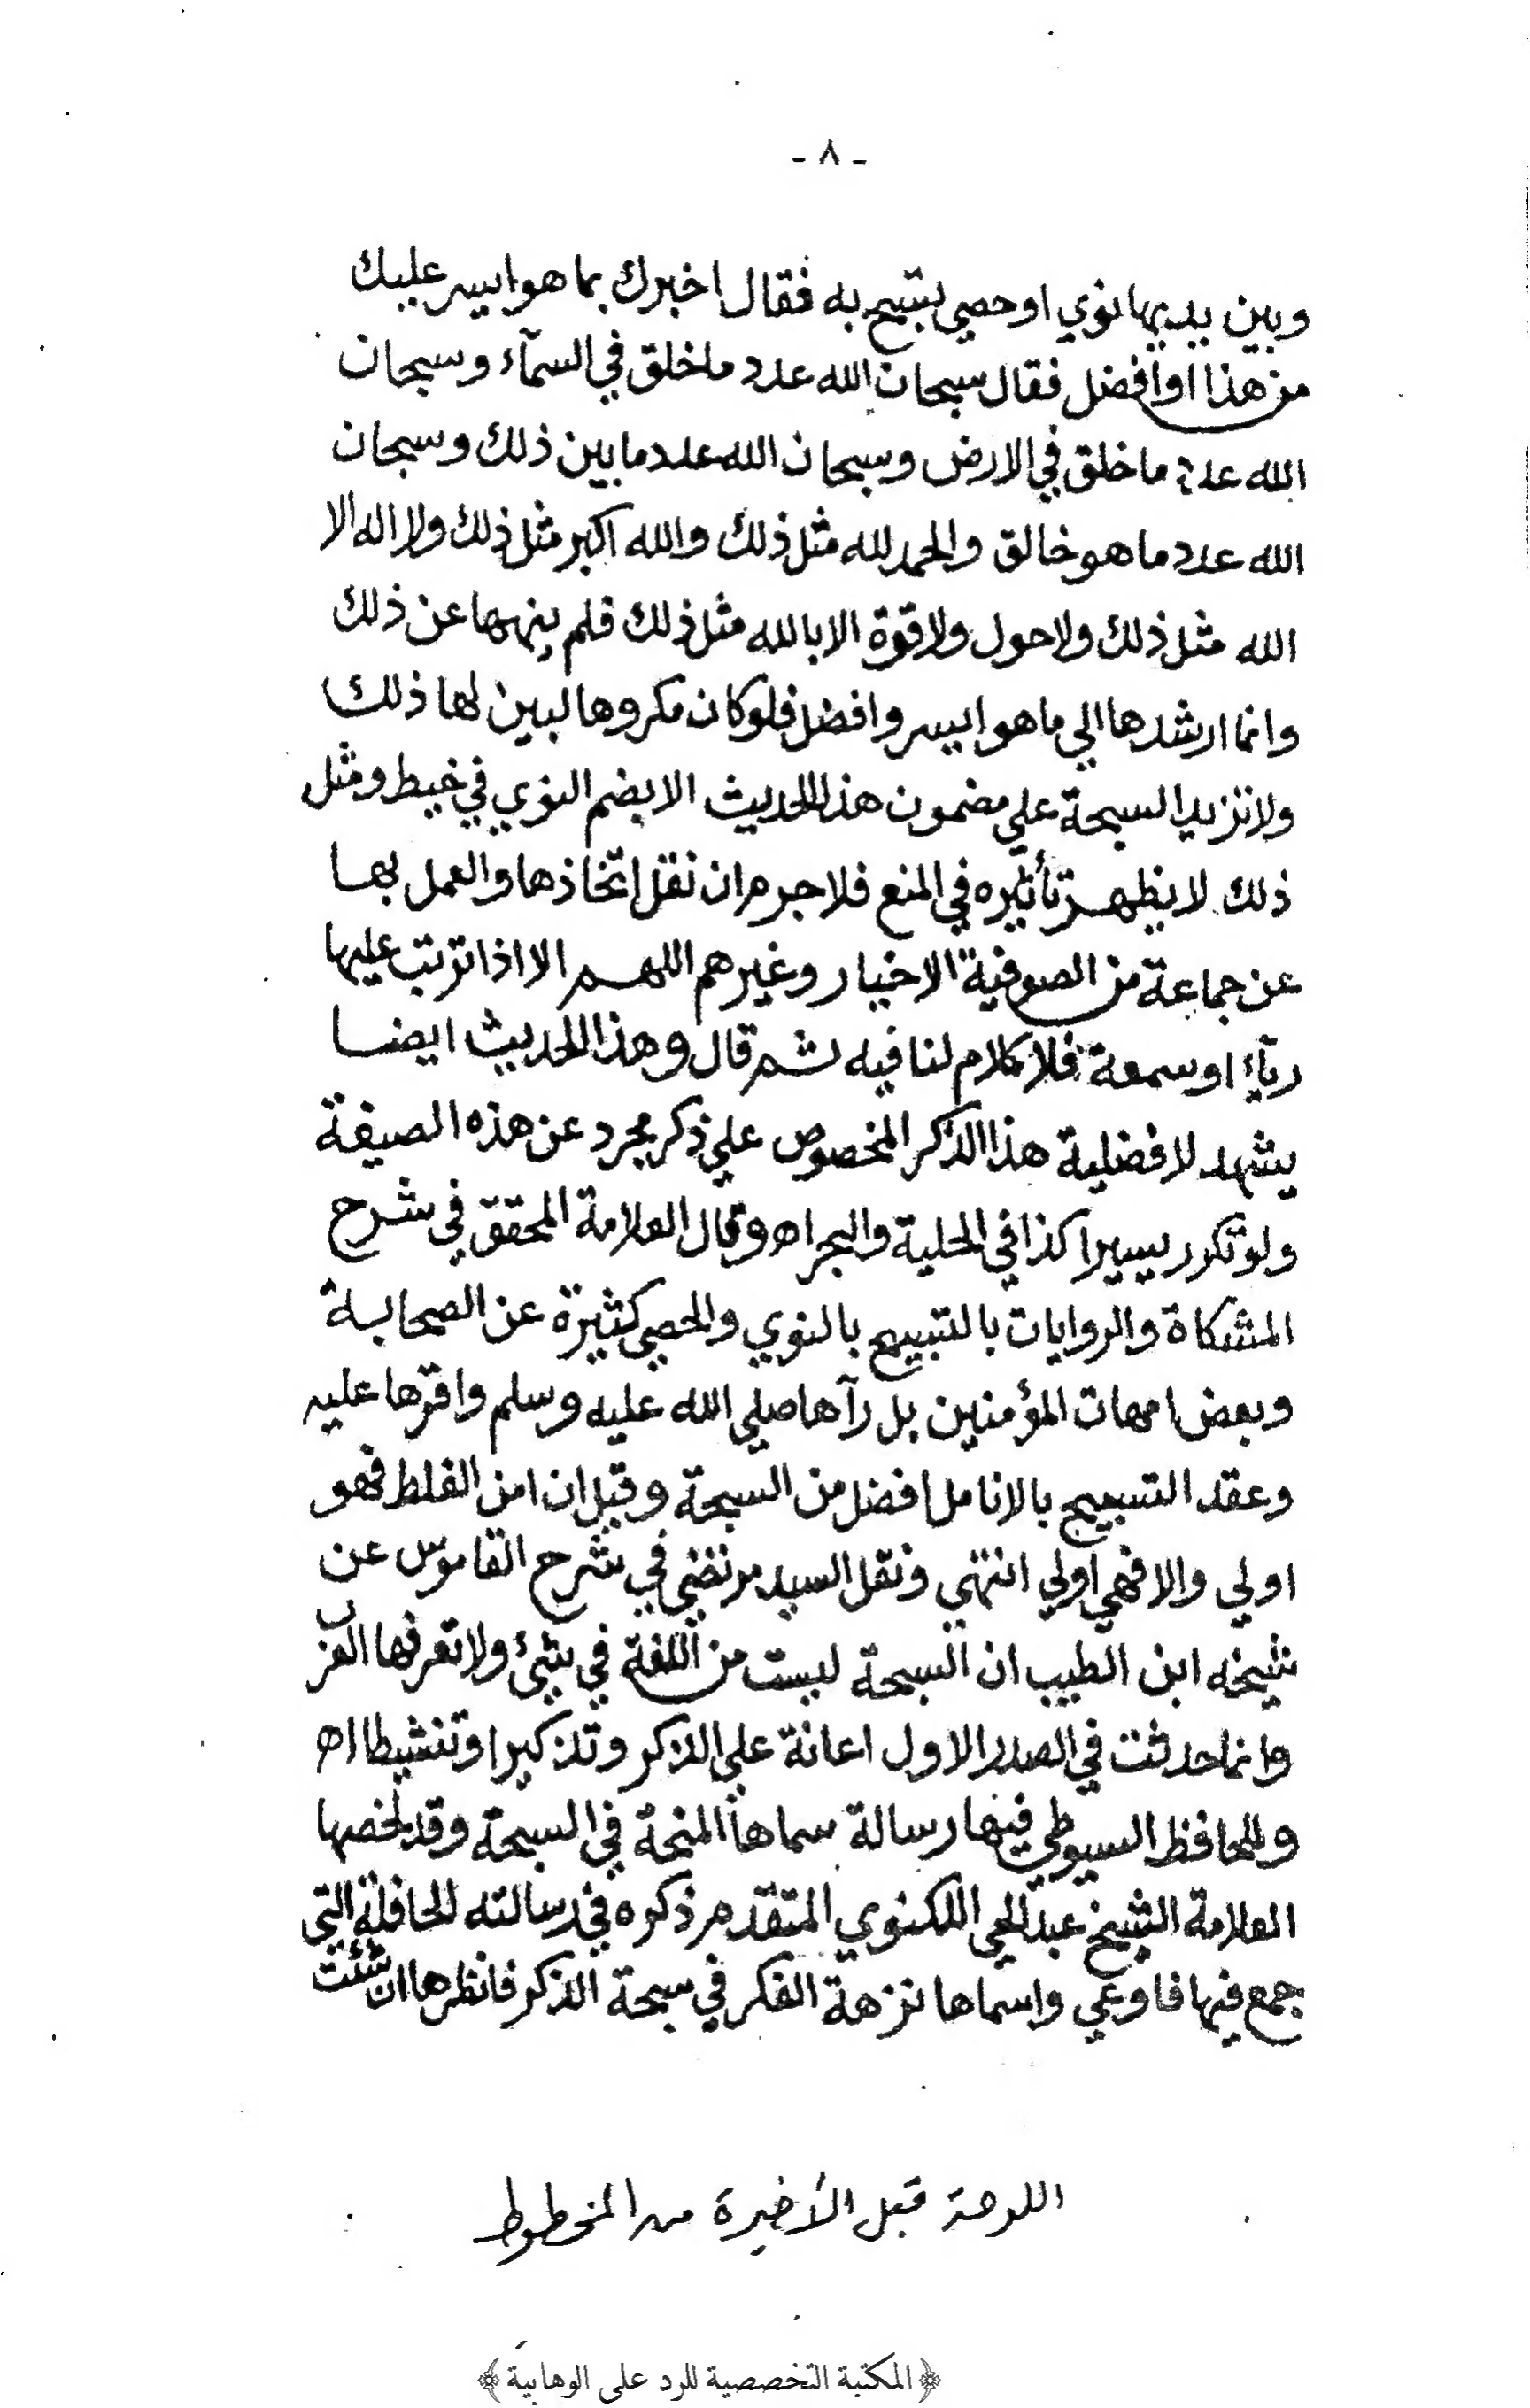 - ٨ -
وبين يديها نوي او حصي تسبح به فقال اخبرك بما هو ايسر عليك
من هذا او افضل فقال سبحان الله عدد ما خلق في السمآء وسبحان
الله عدد ما خلق في الارض وسبحان الله عدد ما بين ذلك وسبحان
الله عدد ما هو خالق والحمد لله مثل ذلك والله اكبر مثل ذلك ولا اله الا
الله مثل ذلك ولا حول ولا قوة الا بالله مثل ذلك فلم ينهها عن ذلك
وانما ارشدها الي ما هو ايسر وافضل فلو كان مكروها لبين لها ذلك
ولا تزيد السبحة علي مضمون هذا الحديث الا بضم النوي في خيط ومثل
ذلك لا يظهر تأثيره في المنع فلا جرم ان نقل اتخاذها والعمل بها
عن جماعة من الصوفية الاخيار وغيرهم اللهم الا اذا ترتب عليها
رياء او سمعة فلا كلام لنا فيه ثم قال وهذا الحديث ايضا
يشهد لافضلية هذا الذكر المخصوص علي ذكر مجرد عن هذه الصيغة
ولو تكرر يسيرا كذا في الحلية والبحر اه وقال العلامة المحقق في شرح
المشكاة والروايات بالتسبيح بالنوي والحصي كثيرة عن الصحابة
وبعض امهات المؤمنين بل رآها صلي الله عليه وسلم واقرها عليه
وعقد التسبيح بالانامل افضل من السبحة وقيل ان امن الغلط فهو
اولي والا فهي اولي انتهي ونقل السيد مرتضي في شرح القاموس عن
شيخه ابن الطيب ان السبحة ليست من اللغة في شئ ولا تعرفها العرب
وانما حدثت في الصدر الاول اعانة علي الذكر وتذكيرا وتنشيطا اه
وللحافظ السيوطي فيها رسالة سماها المنحة في السبحة وقد لخصها
العلامة الشيخ عبد الحي اللكنوي المتقدم ذكره في رسالته الحافلة التي
جمع فيها فاوعي واسماها نزهة الفكر في سبحة الذكر فانظرها ان شئت
اللوحة قبل الأخيرة من المخطوط
﴿المكتبة التخصصية للرد على الوهابية﴾